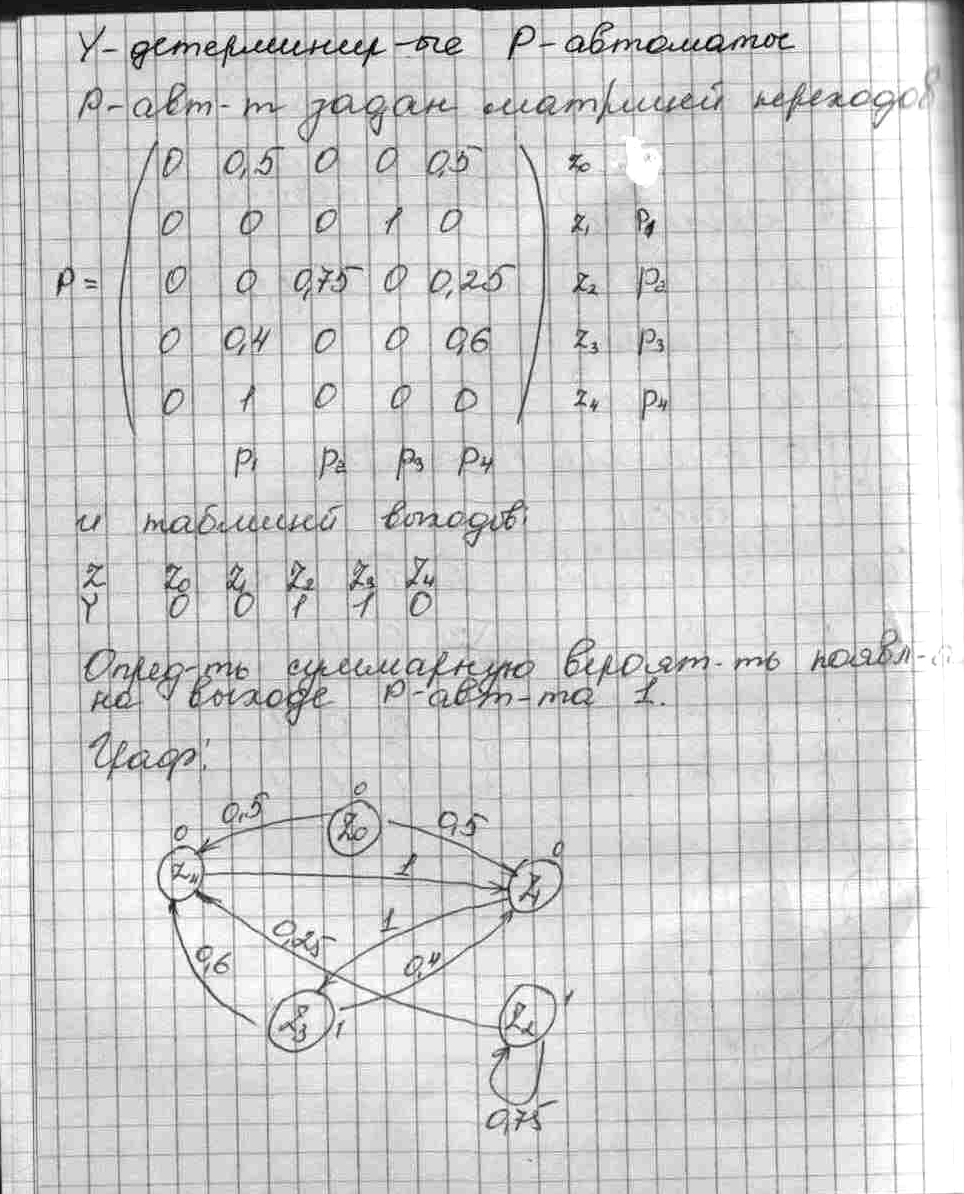 Y-детерминир-ые P-автоматы
P-авт-т задан матрицей переходов
0 0,5 0 0 0,5 z₀
0 0 0 1 0 z₁ p₁
P= 0 0 0,75 0 0,25 z₂ p₂
0 0,4 0 0 0,6 z₃ p₃
0 1 0 0 0 z₄ p₄
p₁ p₂ p₃ p₄
и таблицей выходов:
Z Z₀ Z₁ Z₂ Z₃ Z₄
Y 0 0 1 1 0
Опред-ть суммарную вероят-ть появл-я
на выходе P-авт-та 1.
Граф:
0
0,5 Z₀ 0,5
0 0
Z₄ 1 Z₁
0,25 1
0,6 0,4
Z₃ 1 Z₂ 1
0,75